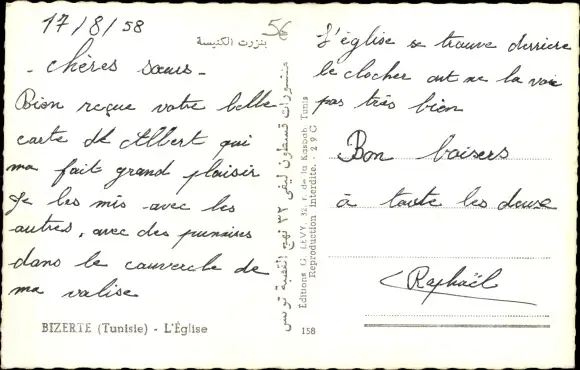 17/8/58
بنزرت الكنيسة
56
- chères sœurs -
Bien reçue votre belle
carte d'Albert qui
ma fait grand plaisir
Je les mis avec les
autres, avec des punaises
dans le couvercle de
ma valise
BIZERTE (Tunisie) - L'Église
منشورات قسطون ليفي ٣٢ نهج القصبة تونس
Éditions G. LÉVY, 32, r. de la Kasbah, Tunis
Reproduction Interdite. - 29C
158
L'église se trouve derriere
le clocher ont ne la voie
pas très bien
Bon baisers
à toute les deuse
Raphaël